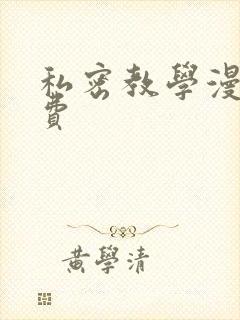 私密教學漫
費
黃學清